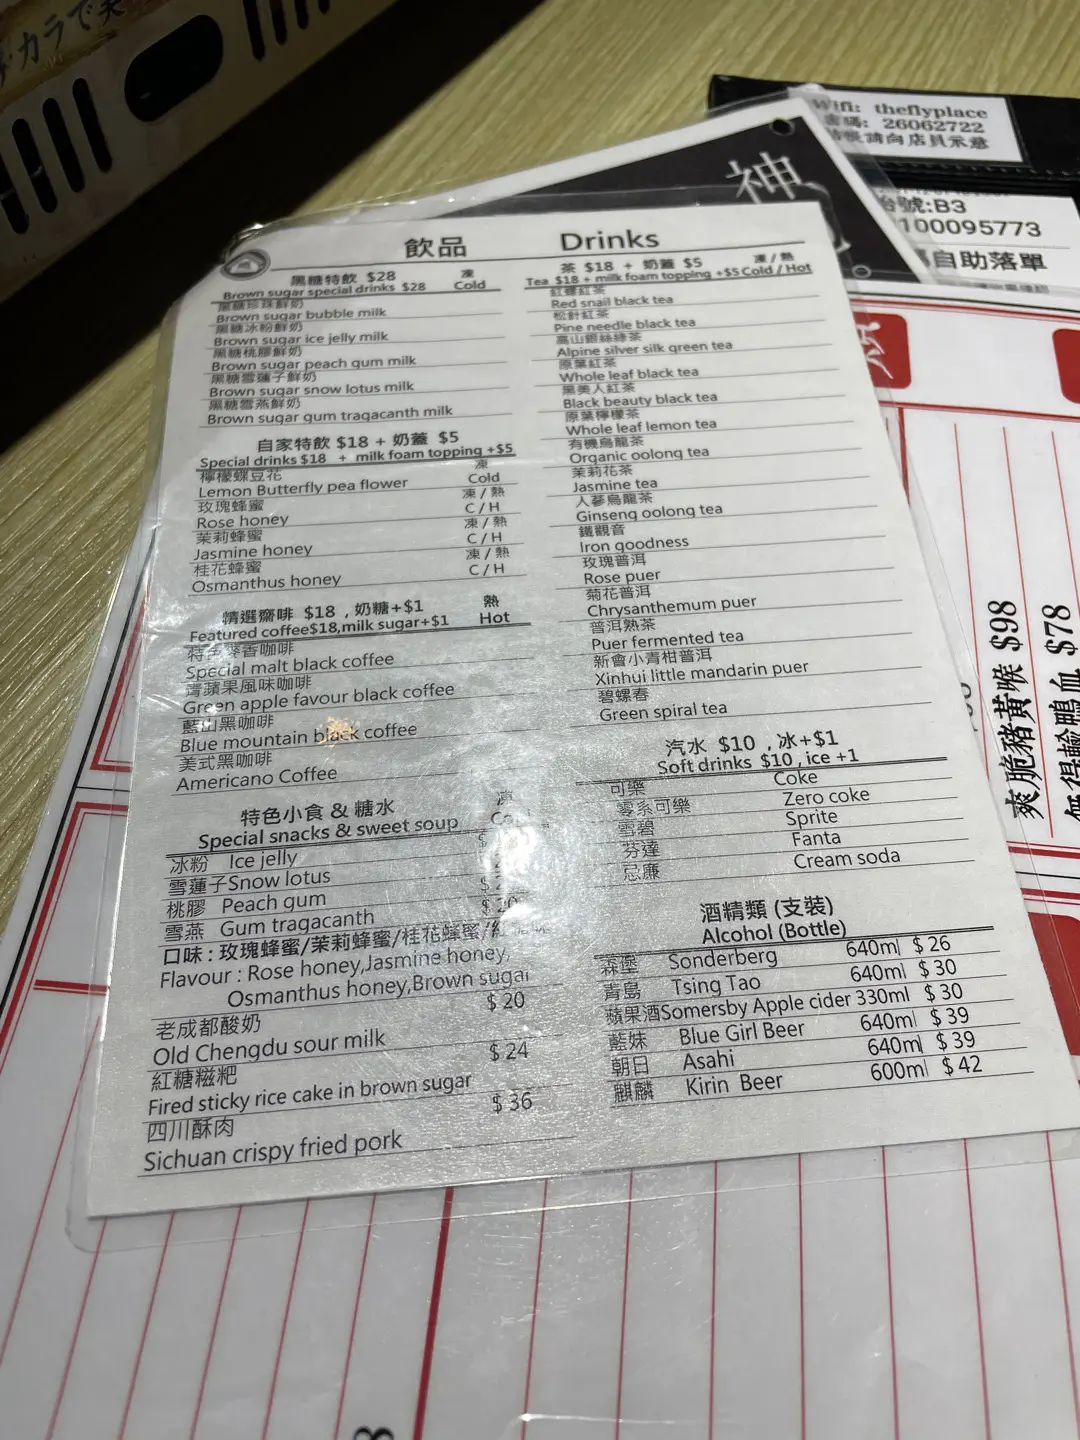 カラで
Wifi: theflyplace
密碼: 26062722
請向店員示意
神
台號:B3
100095773
自助落單
飲品 Drinks
黑糖特飲 $28 凍
Brown sugar special drinks $28 Cold
黑糖珍珠鮮奶
Brown sugar bubble milk
黑糖冰粉鮮奶
Brown sugar ice jelly milk
黑糖桃膠鮮奶
Brown sugar peach gum milk
黑糖雪蓮子鮮奶
Brown sugar snow lotus milk
黑糖雪燕鮮奶
Brown sugar gum tragacanth milk
自家特飲 $18 + 奶蓋 $5
Special drinks $18 + milk foam topping +$5
檸檬蝶豆花 凍
Lemon Butterfly pea flower Cold
玫瑰蜂蜜 凍 / 熱
Rose honey C / H
茉莉蜂蜜 凍 / 熱
Jasmine honey C / H
桂花蜂蜜 凍 / 熱
Osmanthus honey C / H
精選齋啡 $18 , 奶糖+$1 熱
Featured coffee$18,milk sugar+$1 Hot
特色麥香咖啡
Special malt black coffee
青蘋果風味咖啡
Green apple favour black coffee
藍山黑咖啡
Blue mountain black coffee
美式黑咖啡
Americano Coffee
特色小食 & 糖水 凍
Special snacks & sweet soup
冰粉 Ice jelly
雪蓮子Snow lotus
桃膠 Peach gum
雪燕 Gum tragacanth
口味 : 玫瑰蜂蜜/茉莉蜂蜜/桂花蜂蜜/紅
Flavour : Rose honey,Jasmine honey,
Osmanthus honey,Brown sugar
$ 20
老成都酸奶
Old Chengdu sour milk
$ 24
紅糖糍粑
Fired sticky rice cake in brown sugar
$ 36
四川酥肉
Sichuan crispy fried pork
茶 $18 + 奶蓋 $5 凍 / 熱
Tea $18 + milk foam topping +$5 Cold / Hot
紅螺紅茶
Red snail black tea
松針紅茶
Pine needle black tea
高山銀絲綠茶
Alpine silver silk green tea
原葉紅茶
Whole leaf black tea
黑美人紅茶
Black beauty black tea
原葉檸檬茶
Whole leaf lemon tea
有機烏龍茶
Organic oolong tea
茉莉花茶
Jasmine tea
人蔘烏龍茶
Ginseng oolong tea
鐵觀音
Iron goodness
玫瑰普洱
Rose puer
菊花普洱
Chrysanthemum puer
普洱熟茶
Puer fermented tea
新會小青柑普洱
Xinhui little mandarin puer
碧螺春
Green spiral tea
汽水 $10 , 冰+$1
Soft drinks $10 , ice +1
可樂 Coke
零系可樂 Zero coke
雪碧 Sprite
芬達 Fanta
忌廉 Cream soda
酒精類 (支裝)
Alcohol (Bottle)
森堡 Sonderberg 640ml $ 26
青島 Tsing Tao 640ml $ 30
蘋果酒Somersby Apple cider 330ml $ 30
藍妹 Blue Girl Beer 640ml $ 39
朝日 Asahi 640ml $ 39
麒麟 Kirin Beer 600ml $ 42
爽脆豬黃喉 $98
無得輸鴨血 $78